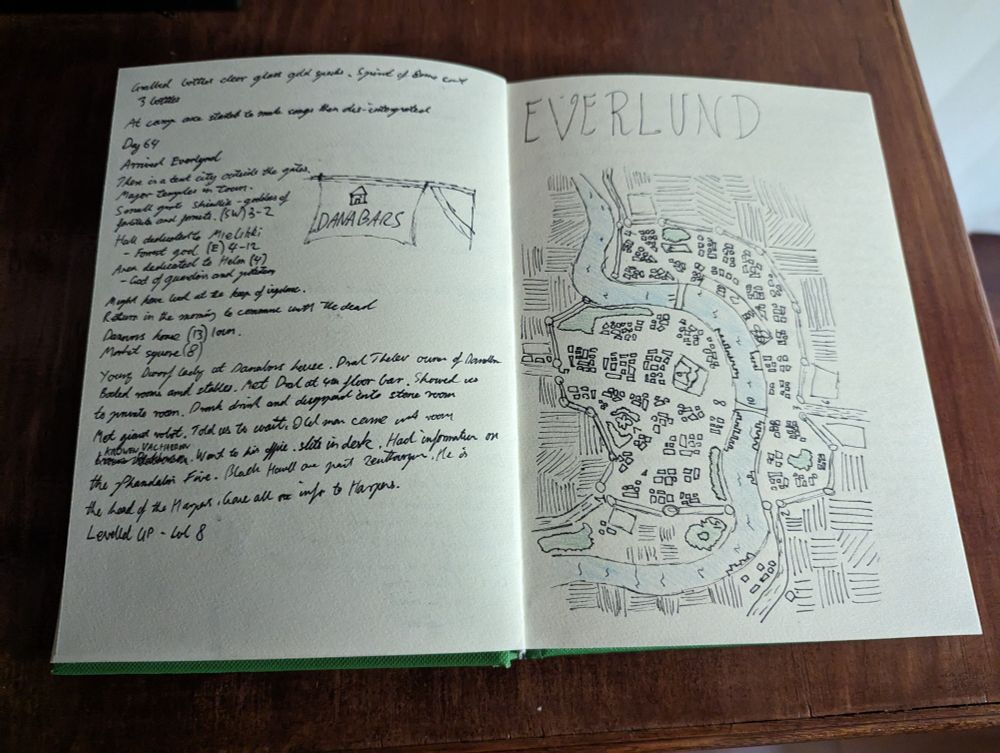 bottles clear glass gold specks. Spirit of
3 bottles
At camp axe started to make songs then dis-integrated
Day 64
Arrived Everlund
There is a tent city outside the gates.
Major temples in town.
Small giant Shiallia - goddess of
and forests. (SW) 3-2
Hall dedicated to Mielikki
- Forest god (E) 4-12
Area dedicated to Helm (4)
- God of guardians and protectors
Might have look at the keep of
Return in the morning to commune with the dead
home (13) town.
Market square (8)
Young Dwarf lady at Danabars house. Dral Thelev owner of
Booked rooms and stables. Met Dral at 4th floor bar. Showed us
to private room. Drank drink and disappeared into stone room
Met giant robot. Told us to wait. Old man came into room
KROWEN VALHAREN
Went to his office. slits in desk. Had information on
the Phandalin Five. Black are part Zentharym. He is
the head of the Harpers. Gave all our info to Harpers.
Levelled UP - Lvl 8
DANABARS
EVERLUND
4
2
5
7
8
10
3
6
2